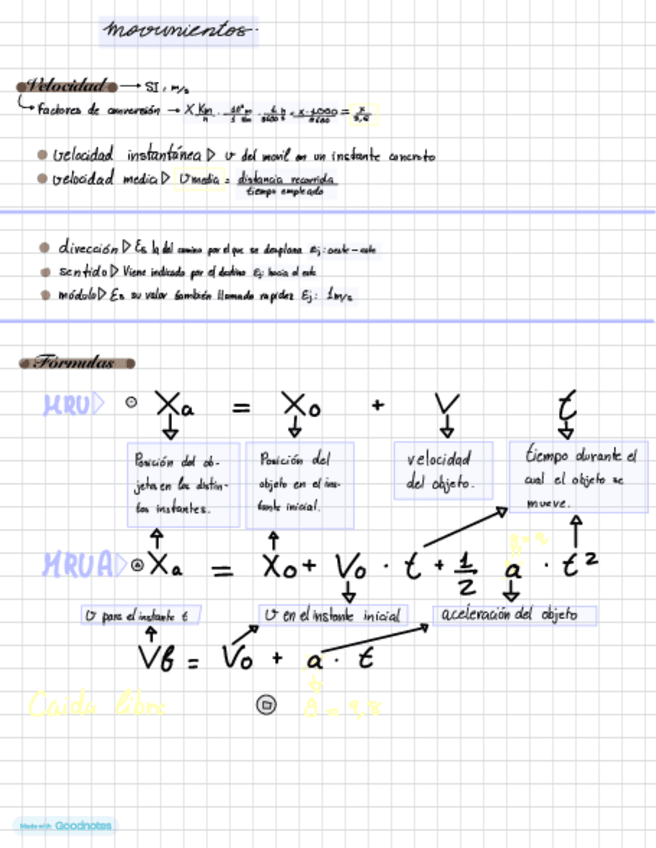 movimientos.
Velocidad → SI: m/s
Factores de conversión → X Km/h · 10³m/1 Km · 1 h/3600 s = x·1000/3600 = x/3,6
velocidad instantánea ▷ v del movil en un instante concreto
velocidad media ▷ Vmedia = distancia recorrida / tiempo empleado
dirección ▷ Es la del camino por el que se desplaza Ej: oeste-este
sentido ▷ Viene indicado por el destino Ej: hacia el este
módulo ▷ Es su valor también llamado rapidez Ej: 1m/s
Fórmulas
MRU ▷ Xa = Xo + V t
Posición del ob-
jeto en los distin-
tos instantes.
Posición del
objeto en el ins-
tante inicial.
velocidad
del objeto.
tiempo durante el
cual el objeto se
mueve.
MRUA ▷ Xa = Xo + Vo · t + 1/2 a · t²
v para el instante t
v en el instante inicial
aceleración del objeto
Vf = Vo + a · t
Caida libre
= 9,8
Made with Goodnotes